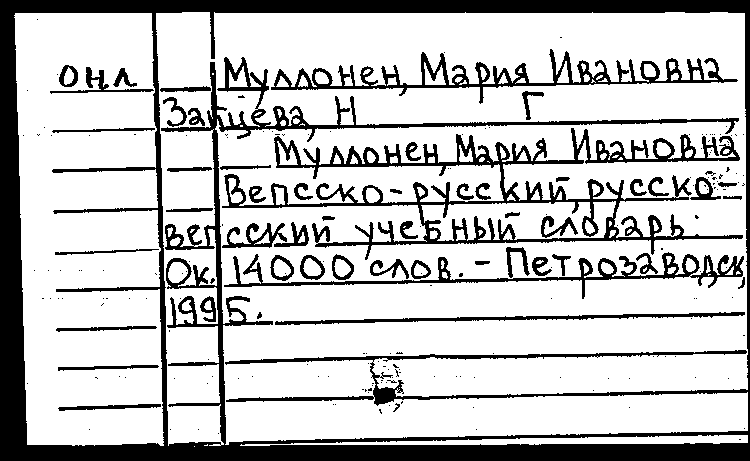 онл Муллонен, Мария Ивановна
Зайцева, Н Г
Муллонен, Мария Ивановна
Вепсско-русский, русско-
вепсский учебный словарь:
Ок. 14000 слов. - Петрозаводск,
1995.